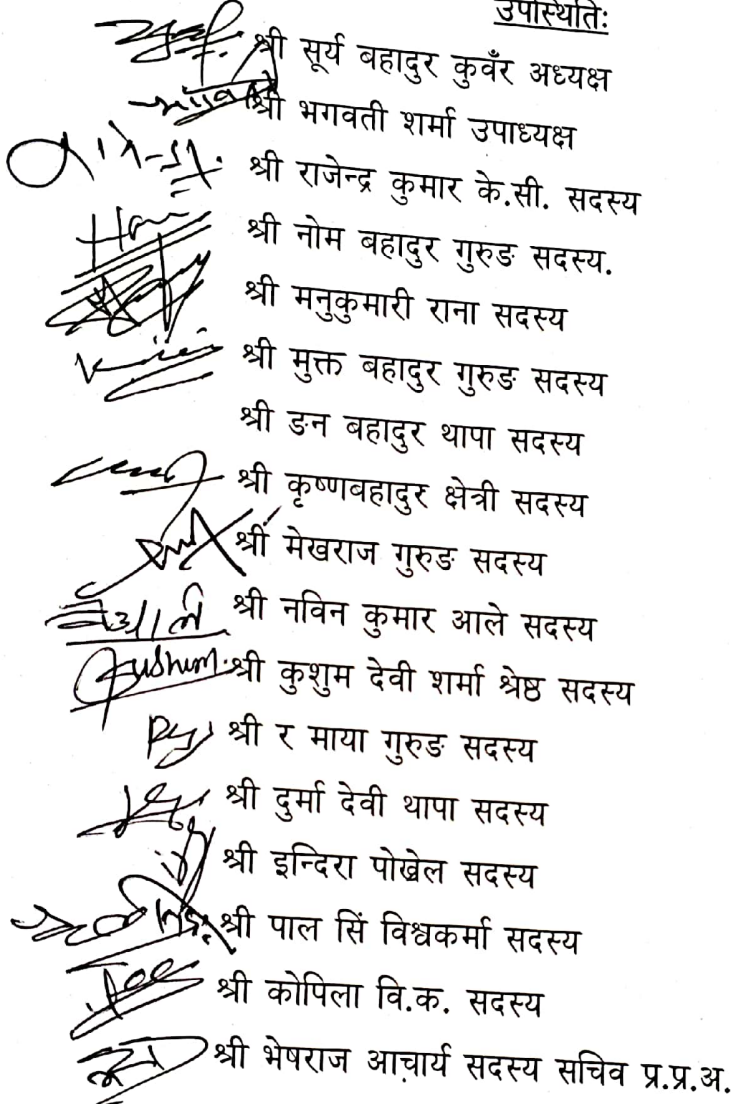 उपस्थितिः
श्री सूर्य बहादुर कुवँर अध्यक्ष
श्री भगवती शर्मा उपाध्यक्ष
श्री राजेन्द्र कुमार के.सी. सदस्य
श्री नोम बहादुर गुरुङ सदस्य.
श्री मनुकुमारी राना सदस्य
श्री मुक्त बहादुर गुरुङ सदस्य
श्री ङन बहादुर थापा सदस्य
श्री कृष्णबहादुर क्षेत्री सदस्य
श्री मेखराज गुरुङ सदस्य
श्री नविन कुमार आले सदस्य
श्री कुशुम देवी शर्मा श्रेष्ठ सदस्य
श्री र माया गुरुङ सदस्य
श्री दुर्मा देवी थापा सदस्य
श्री इन्दिरा पोख्रेल सदस्य
श्री पाल सिं विश्वकर्मा सदस्य
श्री कोपिला वि.क. सदस्य
श्री भेषराज आचार्य सदस्य सचिव प्र.प्र.अ.